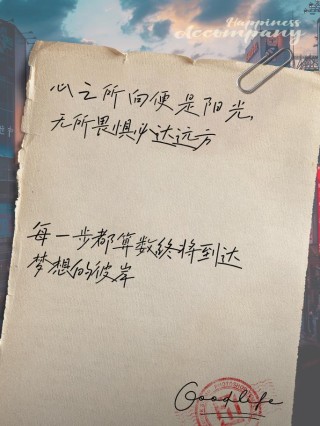 Happiness
accompany
心之所向便是阳光,
无所畏惧必达远方
每一步都算数終将到达
梦想的彼岸
Goodlife